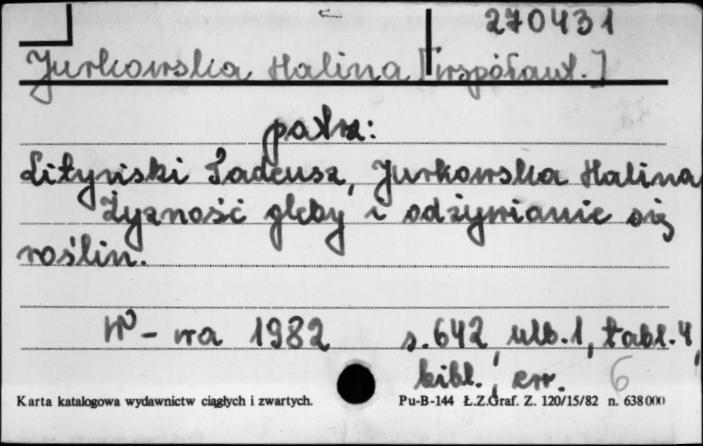 270431
Jurkowska Halina [współaut.]
patrz:
Lityński Tadeusz, Jurkowska Halina
Żyzność gleby i odżywianie się
roślin.
W-wa 1982 s.642, ulb.1, tabl.4,
bibl., err. 6
Karta katalogowa wydawnictw ciągłych i zwartych. Pu-B-144 Ł.Z.Graf. Z. 120/15/82 n. 638000